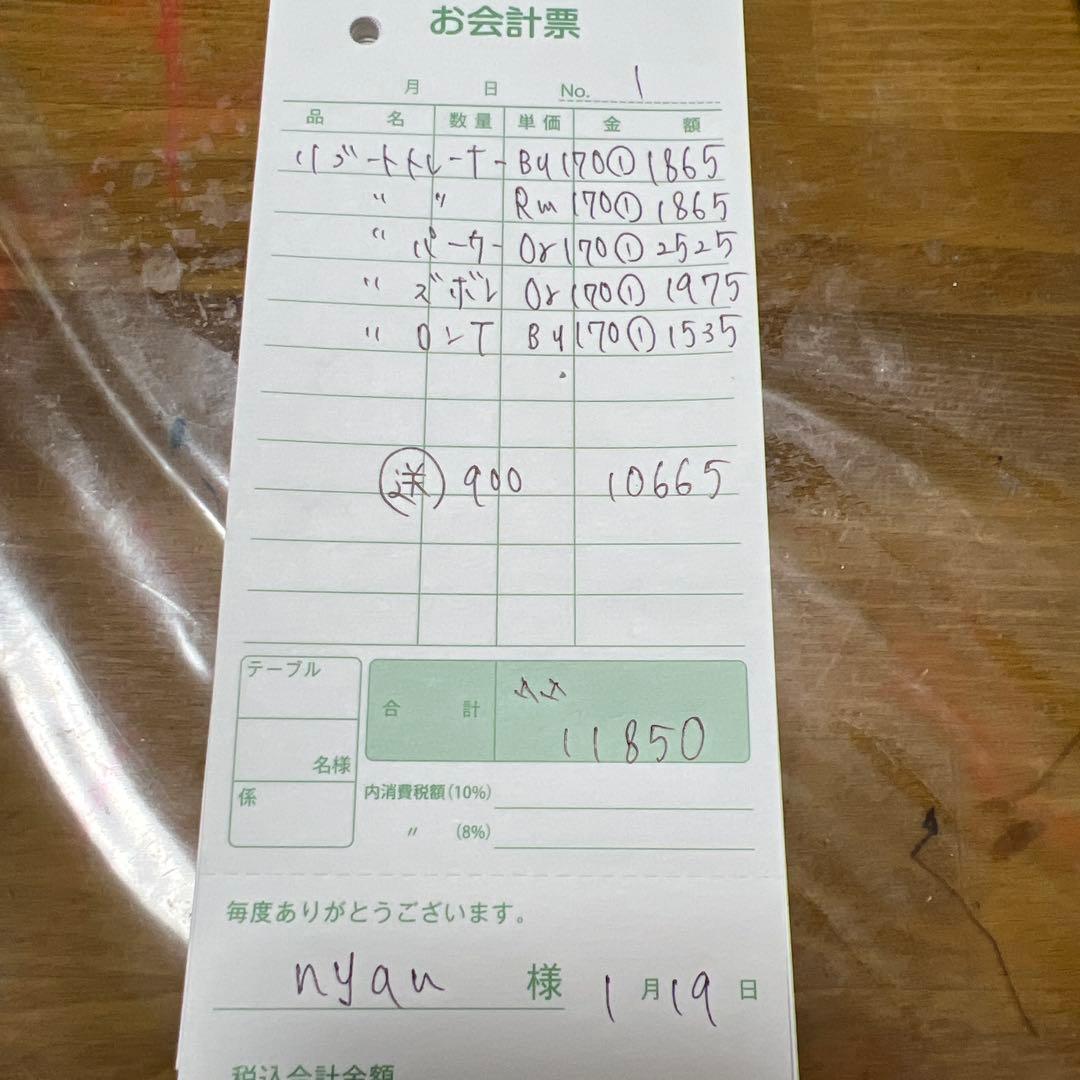 お会計票
月 日 No. 1
品名 数量 単価 金額
リブートトレーナー By 170① 1865
〃 〃 Rm 170① 1865
〃 パーカー Or 170① 2525
〃 ズボン Or 170① 1975
〃 ロンT By 170① 1535
送 900 10665
テーブル
名様
係
合計
11850
内消費税額(10%)
〃 (8%)
毎度ありがとうございます。
nyan 様 1月19日
税込合計金額